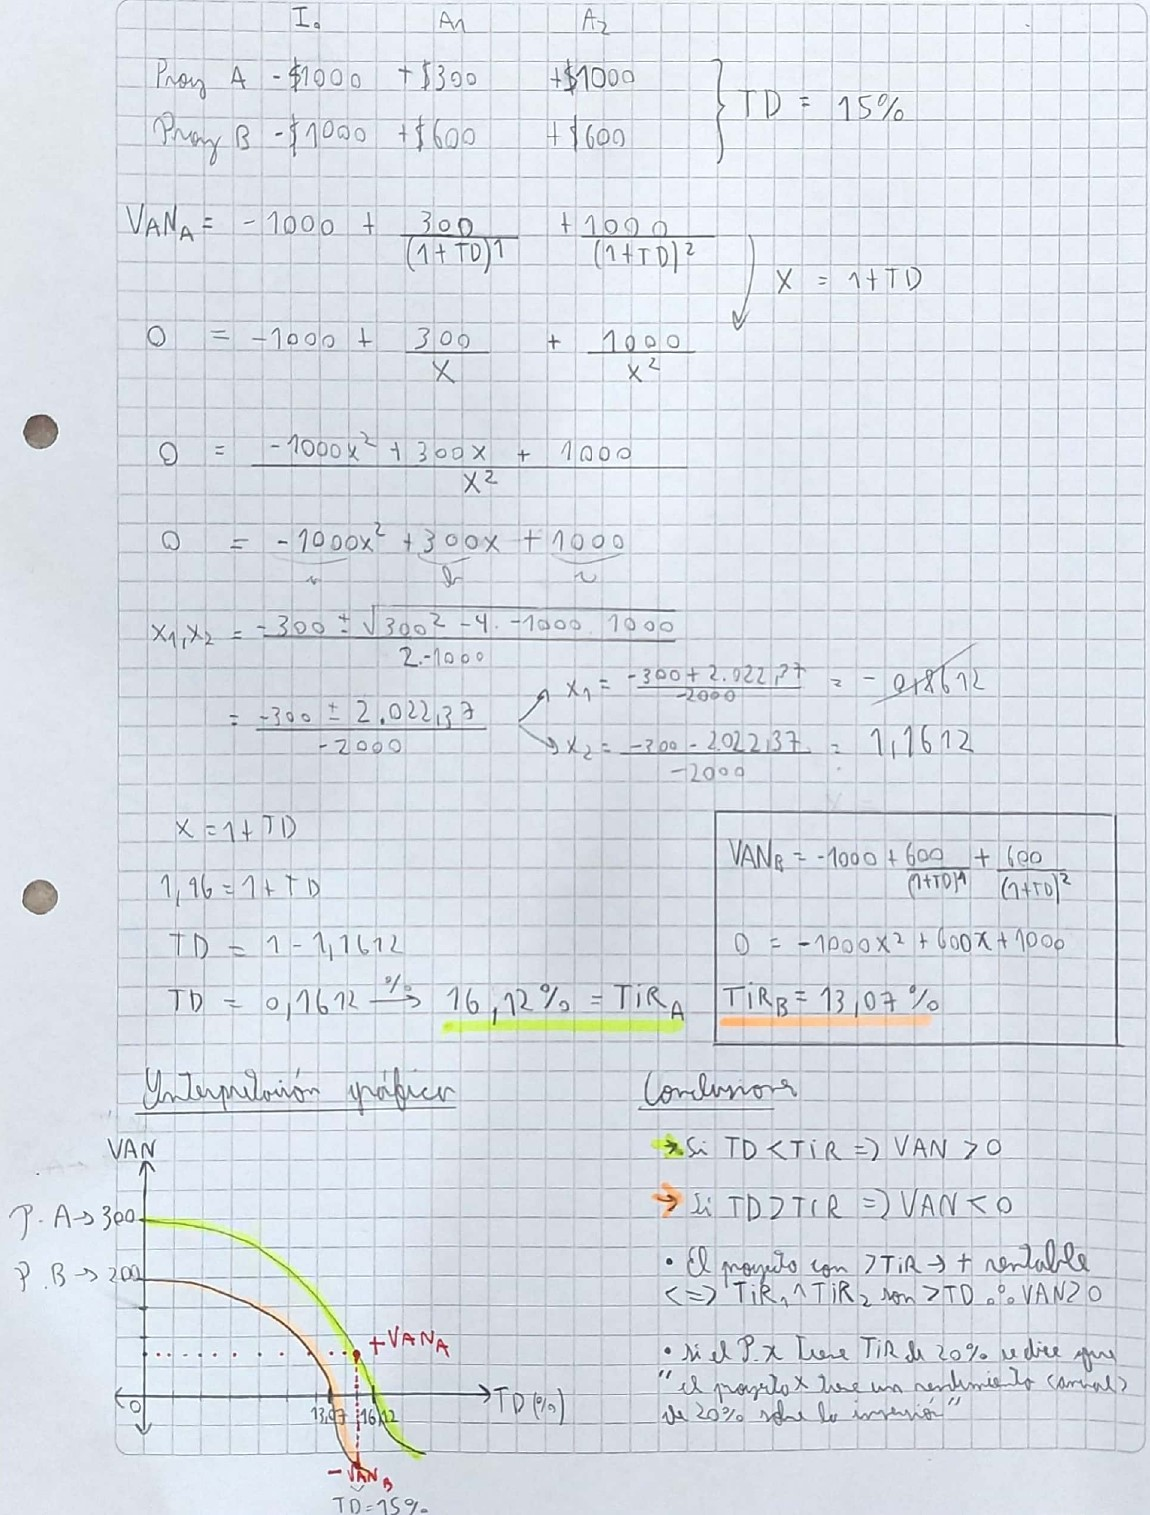 I₀ A1 A2
Proy A -$1000 +$300 +$1000
Proy B -$1000 +$600 +$600
TD = 15%
VAN_A = -1000 + 300/(1+TD)^1 + 1000/(1+TD)^2
X = 1+TD
0 = -1000 + 300/X + 1000/X²
0 = (-1000x² + 300x + 1000)/X²
0 = -1000x² + 300x + 1000
a b c
X1,X2 = (-300 ± √(300² - 4 . -1000 . 1000))/(2.-1000)
= (-300 ± 2.022,37)/(-2000)
X1 = (-300 + 2.022,37)/(-2000) = -0,8612
X2 = (-300 - 2.022,37)/(-2000) = 1,1612
X = 1+TD
1,16 = 1+TD
TD = 1 - 1,1612
TD = 0,1612 %→ 16,12% = TiR_A
VAN_B = -1000 + 600/(1+TD)^1 + 600/(1+TD)^2
0 = -1000x² + 600x + 1000
TiR_B = 13,07%
Interpretación gráfica
VAN
P. A → 300
P. B → 200
+VAN_A
0
13,07 16,12
TD(%)
-VAN_B
TD=15%
Conclusiones
→ Si TD < TiR => VAN > 0
→ Si TD > TiR => VAN < 0
• El proyecto con >TiR → + rentable
<=> TiR1 ^ TiR2 son >TD ∴ VAN>0
• si el P. x tiene TiR de 20% se dice que
"el proyecto x tiene un rendimiento (anual)
de 20% sobre la inversión"